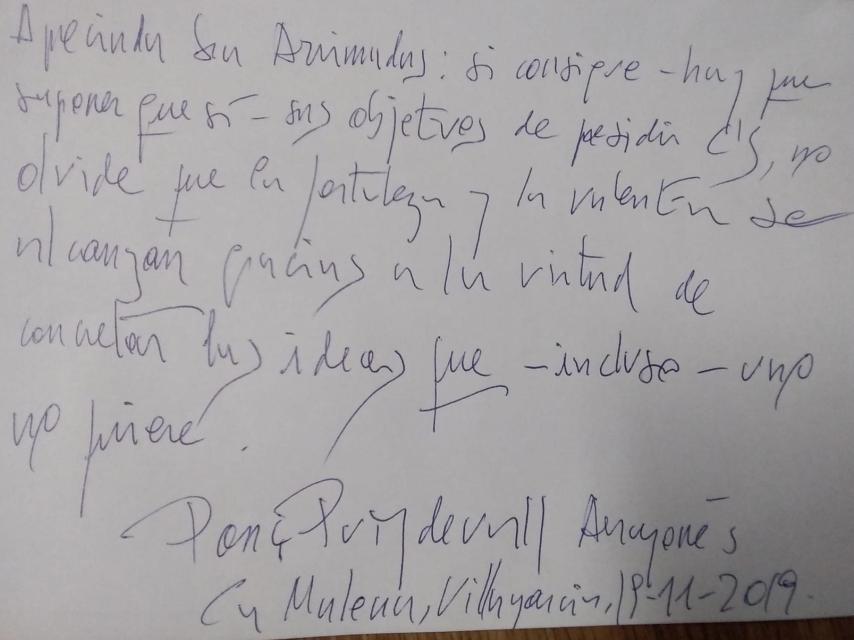 Apreciada Sra Arrimadas: si consigue - hay que
suponer que sí - sus objetivos de presidir C's, no
olvide que la fortaleza y la valentía se
alcanzan gracias a la virtud de
concretar las ideas que - incluso - uno
no quiere.
Ponç Puigdevall Aragonés
Ca Mulera, 19-11-2019.